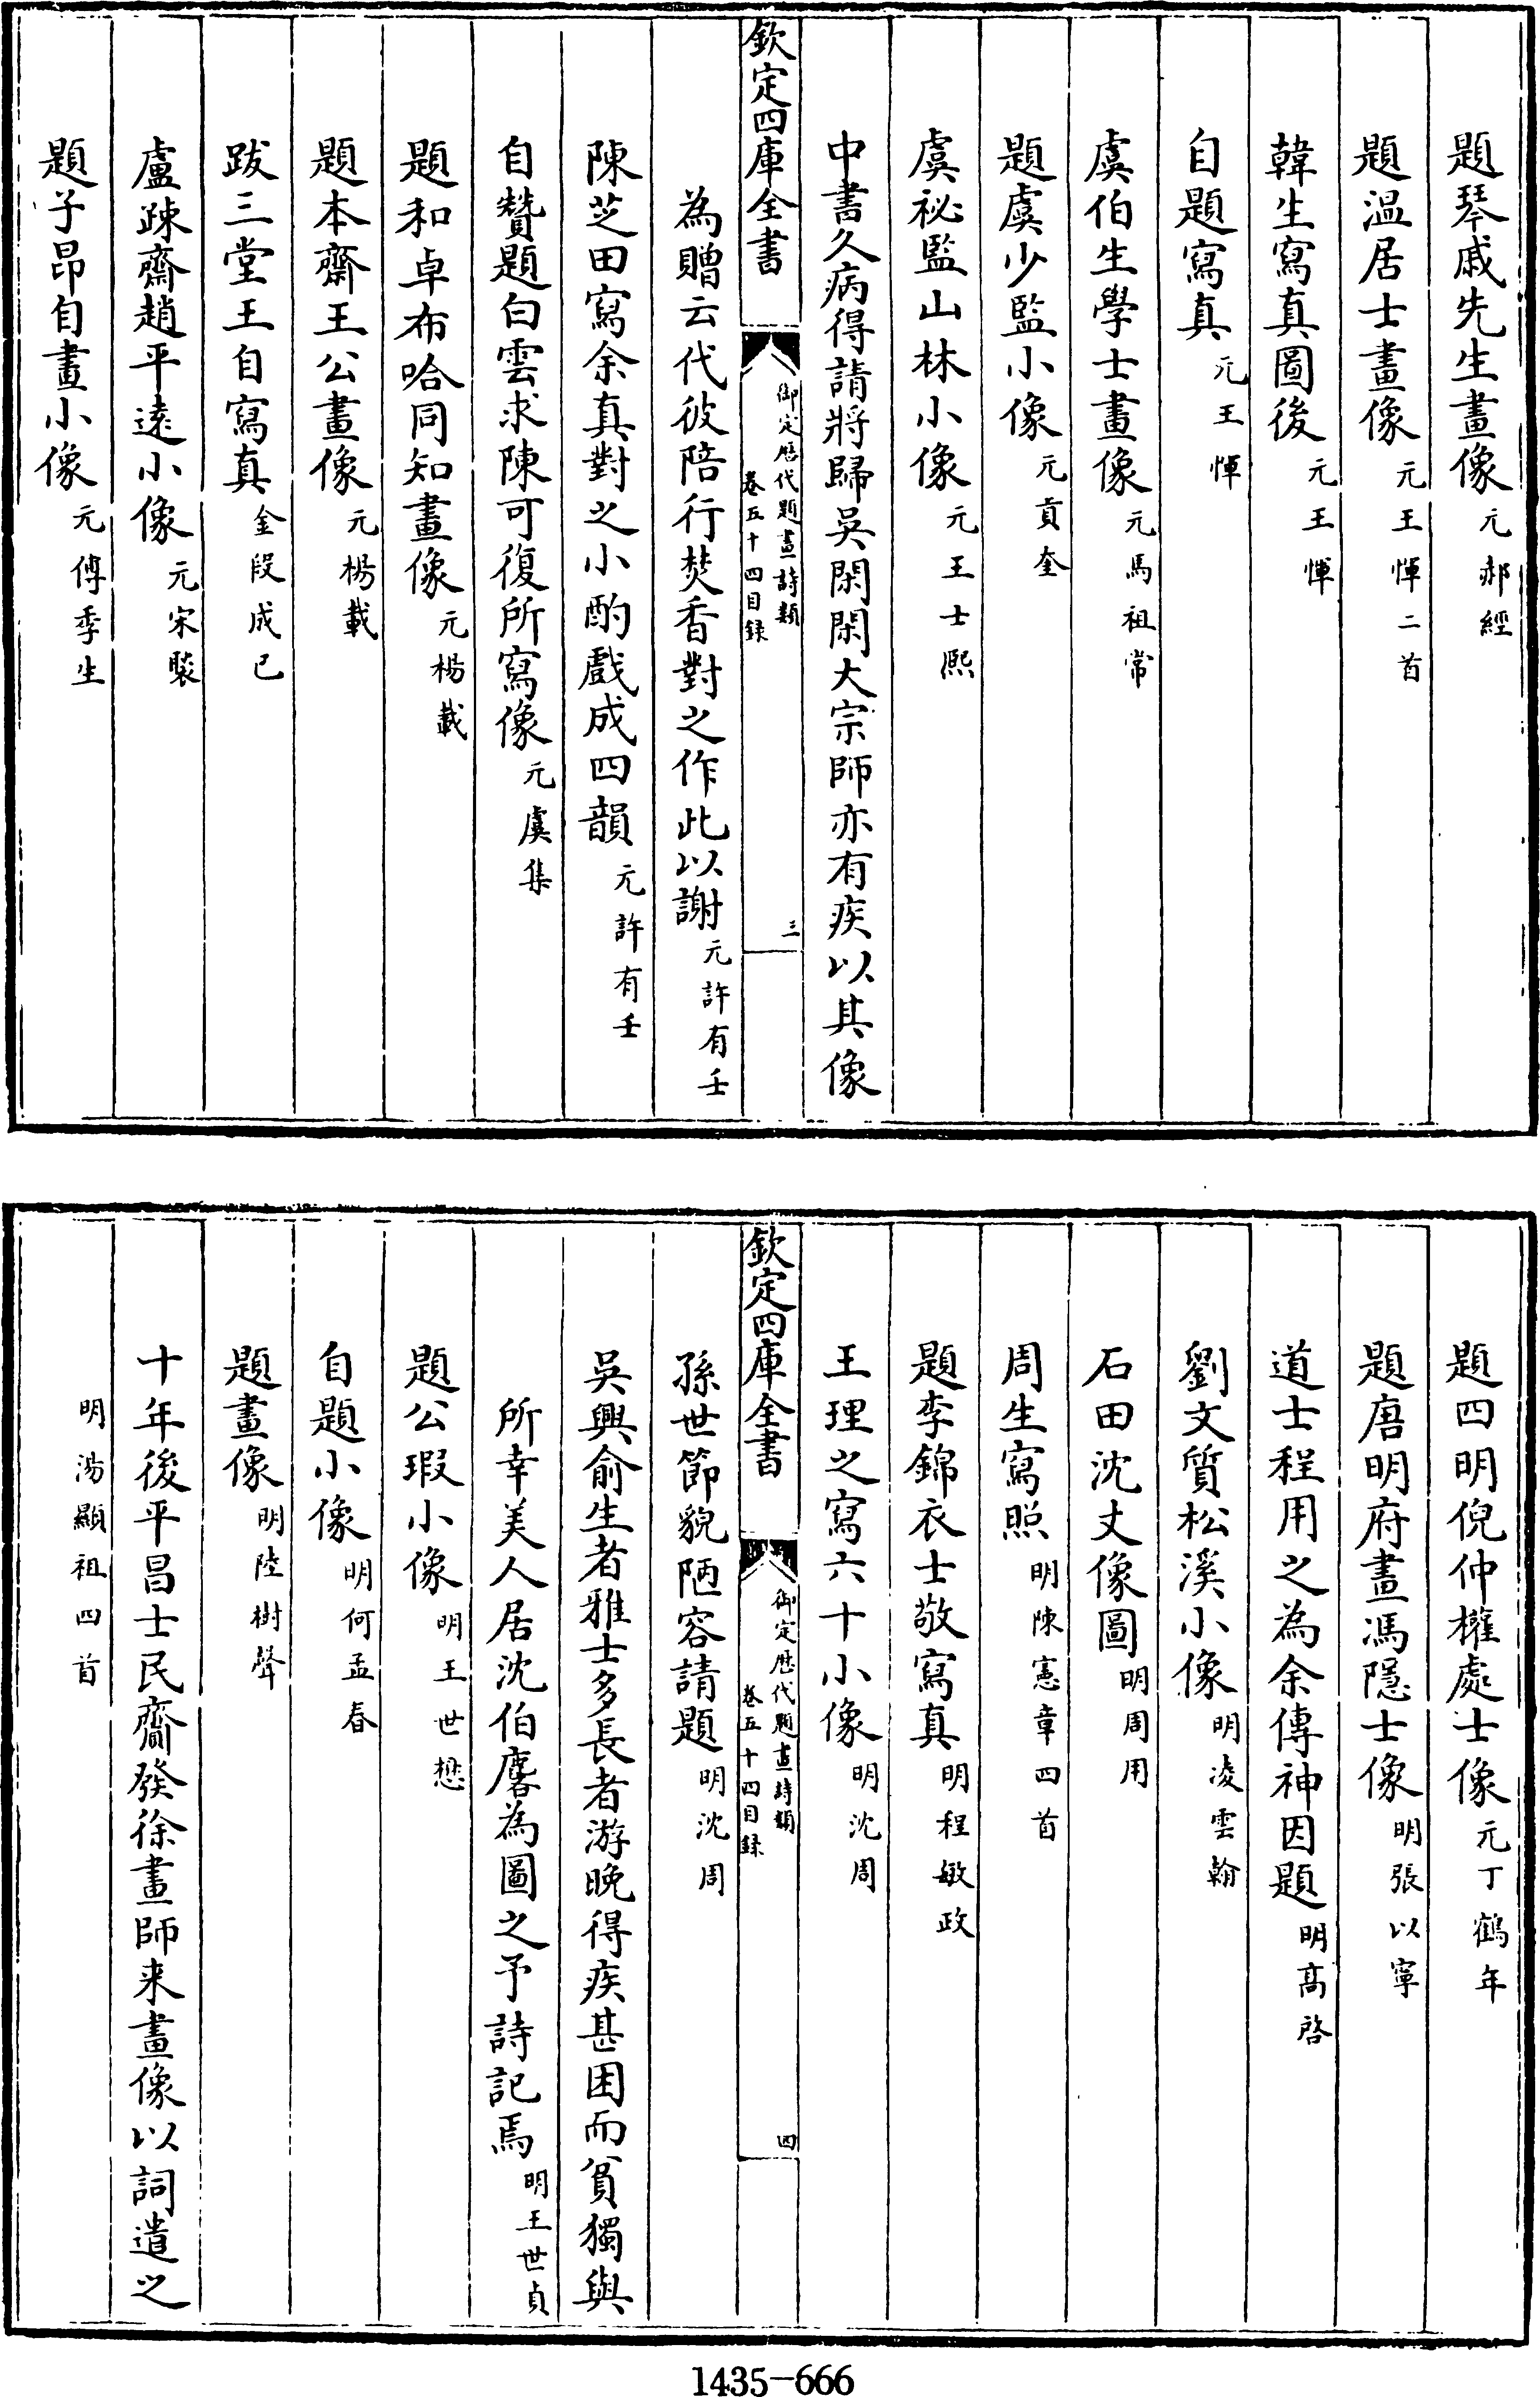 題琴戚先生畫像元郝經
題温居士畫像元王惲二首
韓生寫真圖後元王惲
自題寫真元王惲
虞伯生學士畫像元馬祖常
題虞少監小像元貢奎
虞祕監山林小像元王士熙
中書久病得請將歸吳閑閑大宗師亦有疾以其像
欽定四庫全書
御定歷代題畫詩類
卷五十四目録
三
為贈云代彼陪行焚香對之作此以謝元許有壬
陳芝田寫余真對之小酌戲成四韻元許有壬
自贊題白雲求陳可復所寫像元虞集
題和卓布哈同知畫像元楊載
題本齋王公畫像元楊載
跋三堂王自寫真金段成已
盧疎齋趙平遠小像元宋褧
題子昂自畫小像元傅季生
題四明倪仲權處士像元丁鶴年
題唐明府畫馮隱士像明張以寧
道士程用之為余傳神因題明髙啓
劉文質松溪小像明凌雲翰
石田沈丈像圖明周用
周生寫照明陳憲章四首
題李錦衣士敬寫真明程敏政
王理之寫六十小像明沈周
欽定四庫全書
御定歷代題畫詩類
卷五十四目録
四
孫世節貌陋容請題明沈周
吳興俞生者雅士多長者游晚得疾甚困而貧獨與
所幸美人居沈伯麐為圖之予詩記焉明王世貞
題公瑕小像明王世懋
自題小像明何孟春
題畫像明陸樹聲
十年後平昌士民齎發徐畫師来畫像以詞遣之
明湯顯祖四首
1435-666